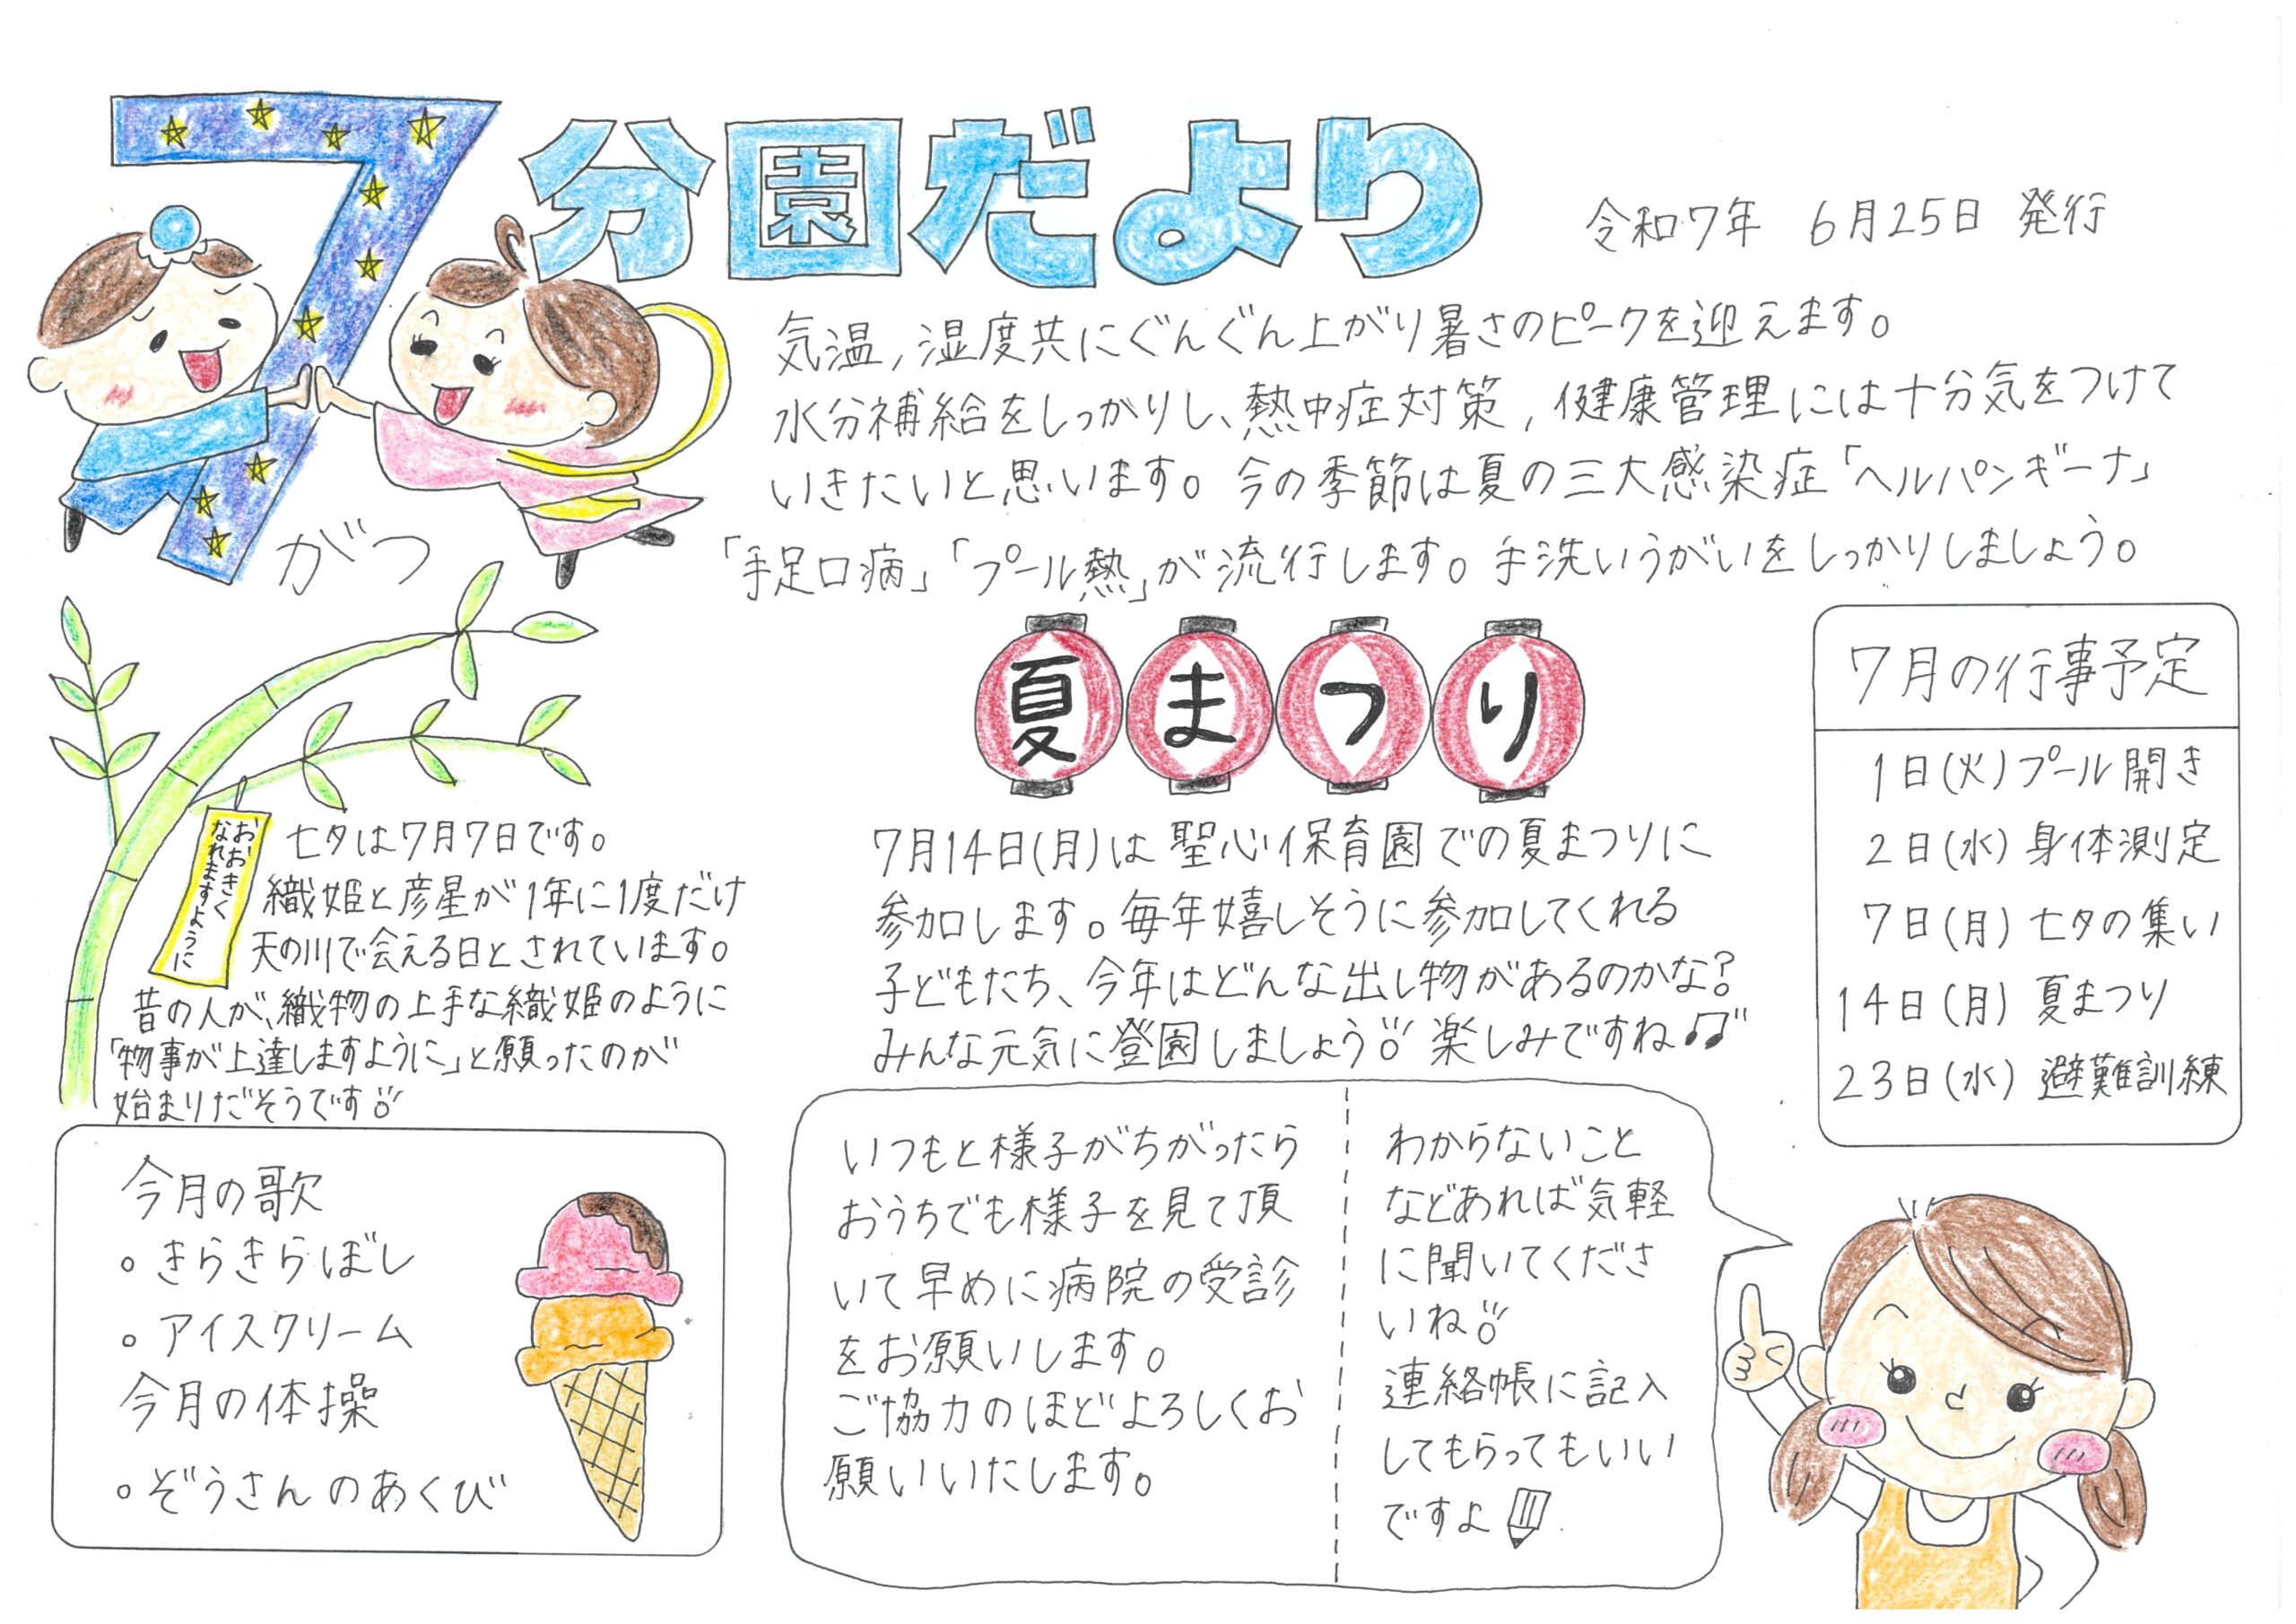 7がつ
分園だより
令和7年 6月25日 発行
気温,湿度共にぐんぐん上がり暑さのピークを迎えます。
水分補給をしっかりし、熱中症対策,健康管理には十分気をつけて
いきたいと思います。今の季節は夏の三大感染症「ヘルパンギーナ」
「手足口病」「プール熱」が流行します。手洗いうがいをしっかりしましょう。
おおきく
なれますように
七夕は7月7日です。
織姫と彦星が1年に1度だけ
天の川で会える日とされています。
昔の人が、織物の上手な織姫のように
「物事が上達しますように」と願ったのが
始まりだそうです
夏まつり
7月14日(月)は聖心保育園での夏まつりに
参加します。毎年嬉しそうに参加してくれる
子どもたち、今年はどんな出し物があるのかな?
みんな元気に登園しましょう 楽しみですね♫
7月の行事予定
1日(火)プール開き
2日(水)身体測定
7日(月)七夕の集い
14日(月)夏まつり
23日(水)避難訓練
今月の歌
。きらきらぼし
。アイスクリーム
今月の体操
。ぞうさんのあくび
いつもと様子がちがったら
おうちでも様子を見て頂
いて早めに病院の受診
をお願いします。
ご協力のほどよろしくお
願いいたします。
わからないこと
などあれば気軽
に聞いてくださ
いね
連絡帳に記入
してもらってもいい
ですよ